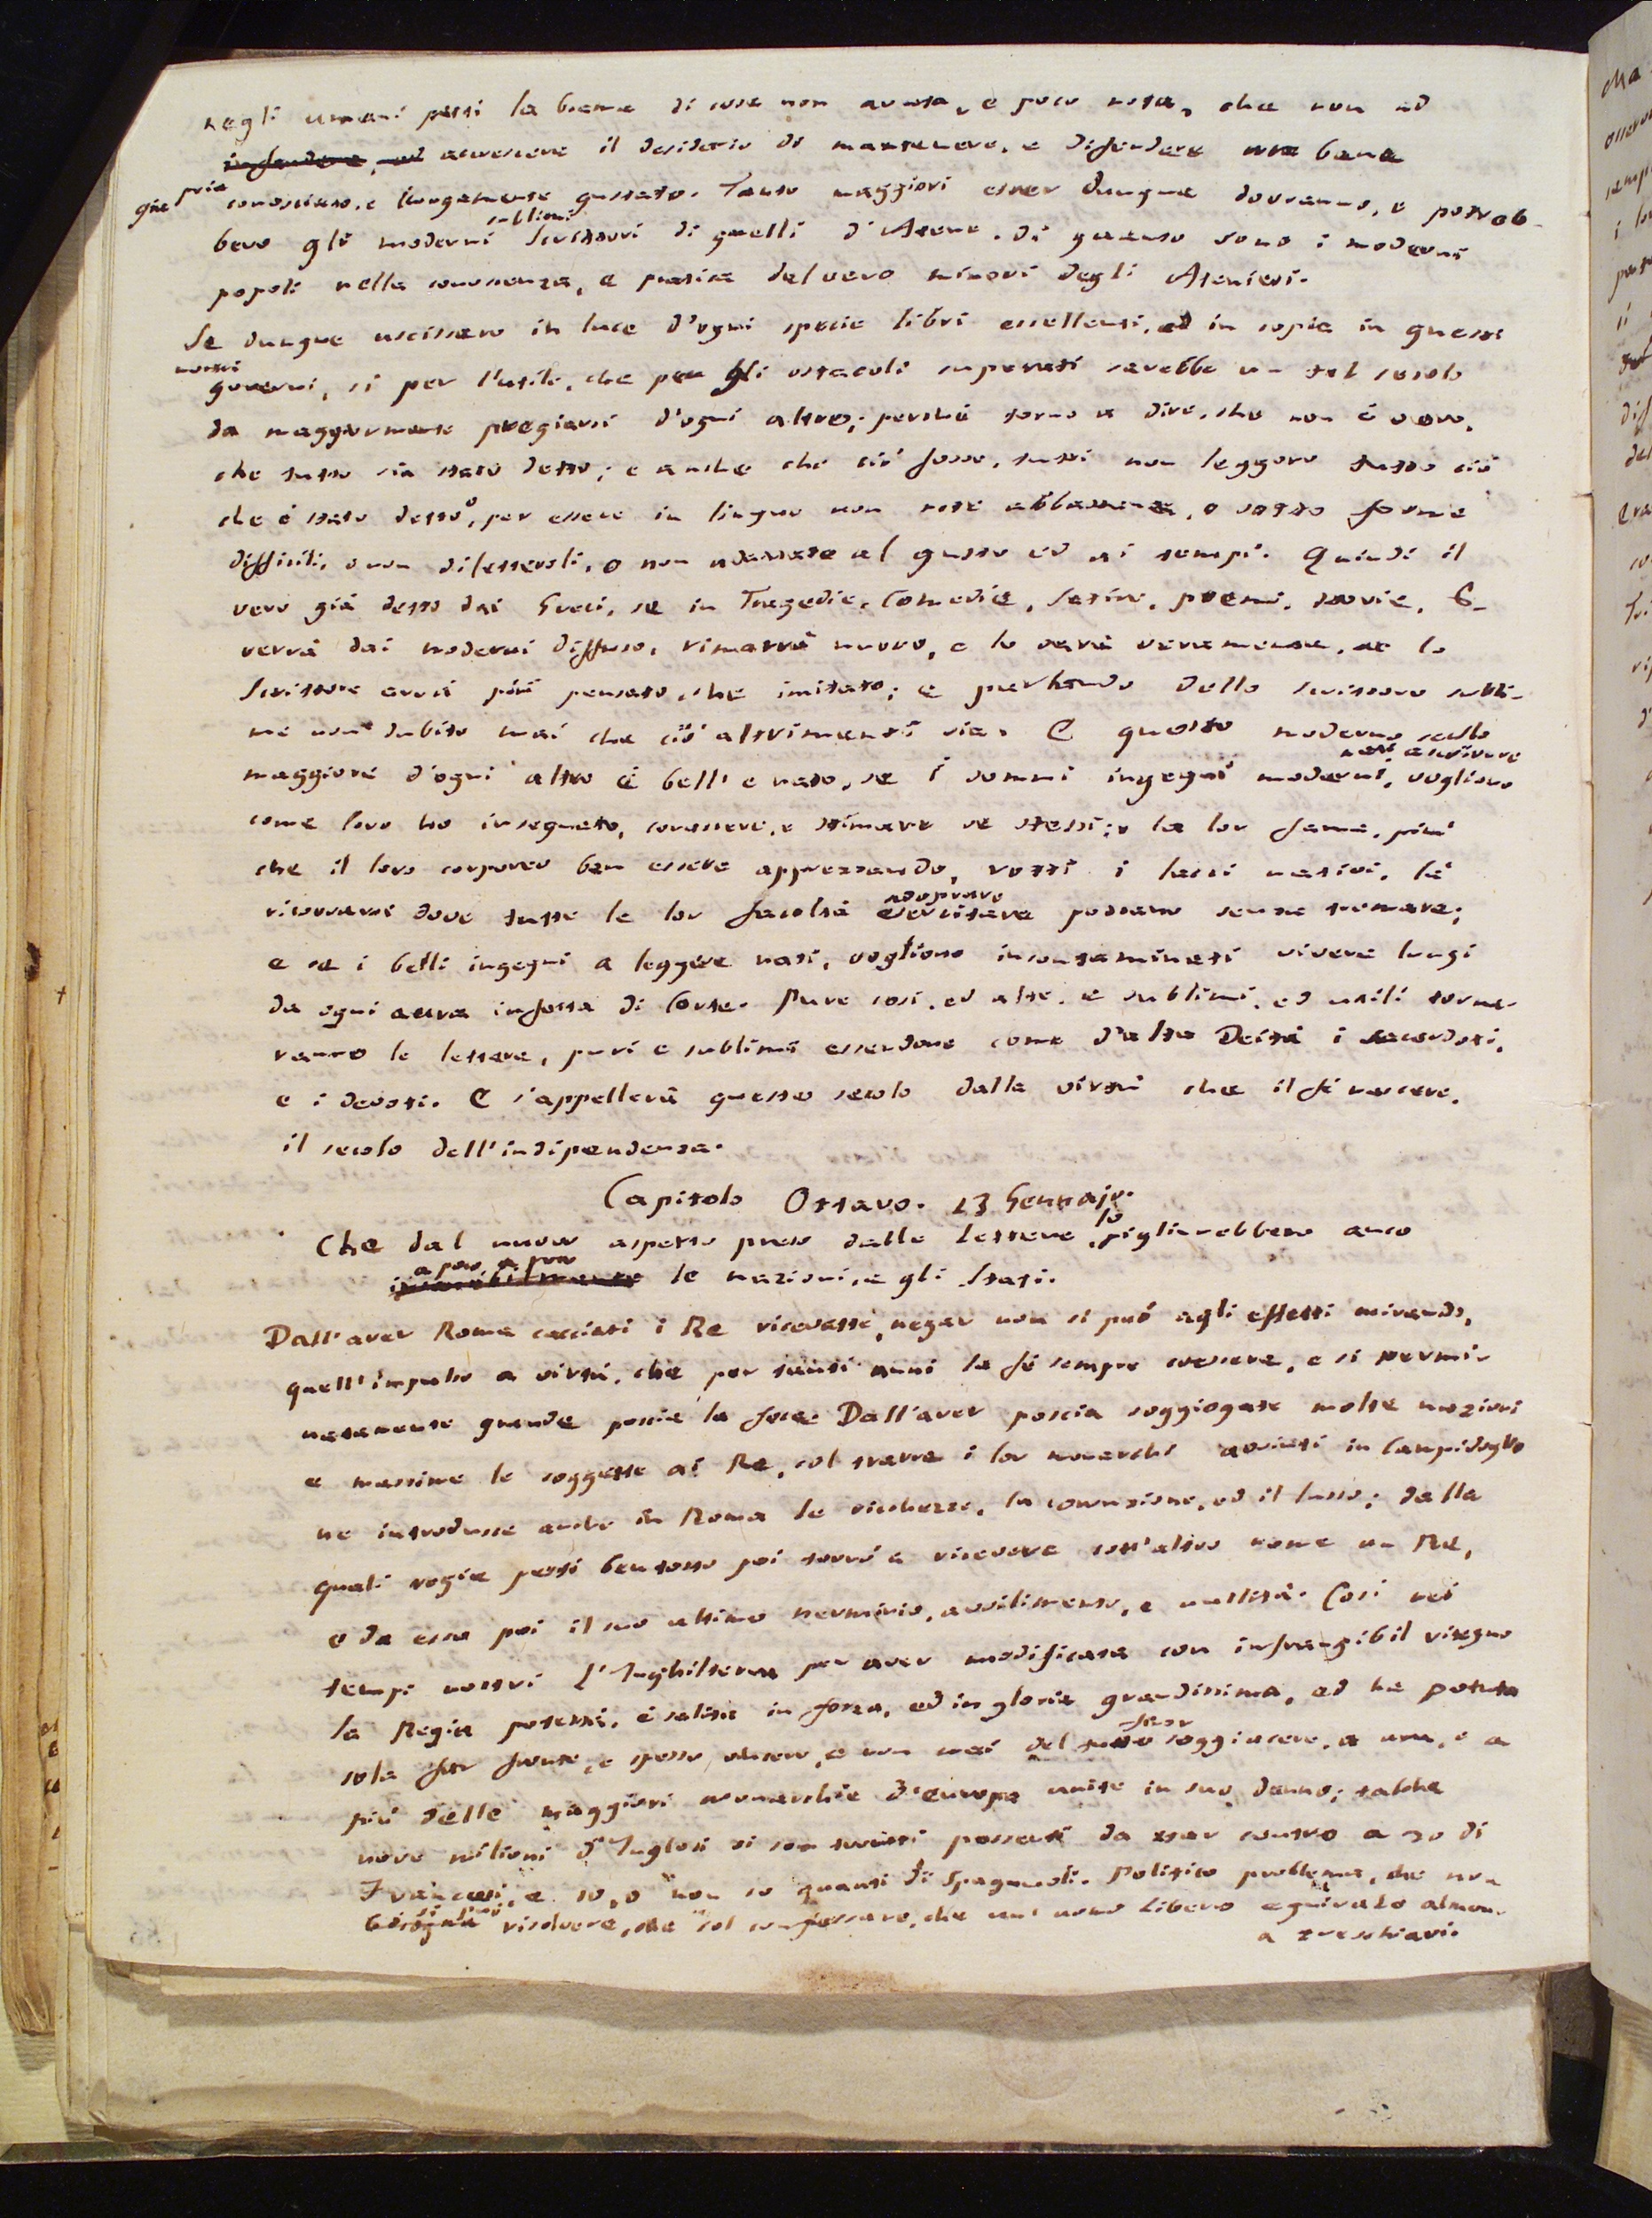 negli umani petti la brama di cosa non avuta, e poco nota, che non ad
infondere, ad accrescere il desiderio di mantenere, e difendere un bene
già pria conosciuto, e lungamente gustato. Tanto maggiori esser dunque dovranno, e potreb-
bero gli moderni sublimi Scrittori di quelli d'Atene, di quanto sono i moderni
popoli nella conoscenza, e pratica del vero minori degli Ateniesi.
Se dunque uscissero in luce d'ogni specie libri eccellenti, ed in copia in questi
nostri governi, sì per l'utile, che per gli ostacoli superati sarebbe un tal secolo
da maggiormente pregiarsi d'ogni altro; perchè torno a dire, che non è vero,
che tutto sia stato detto; e anche che ciò fosse, tutti non leggono tutto ciò
che è stato detto, o per essere in lingue non note abbastanza, o sotto forme
difficili, o non dilettevoli, o non adattate al gusto ed ai tempi. Quindi il
vero già detto dai Greci, se in Tragedie, Comedie, Satire, poemi, storie, &
verrà dai moderni diffuso, rimarrà nuovo, e lo sarà veramente, se lo
Scrittore avrà più pensato, che imitato; e parlando dello scrittore subli-
me non dubito mai che ciò altrimenti sia. E questo moderno secolo
maggiore d'ogni altro è bell'e nato, se i sommi ingegni moderni, nati a scrivere vogliono
come loro ho insegnato, conoscere, e stimare se stessi; e la lor fama, più
che il loro corporeo ben essere apprezzando, rotti i lacci nativi, là
ricovrarsi dove tutte le lor facoltà esercitare adoprare possano senza tremare;
e se i belli ingegni a leggere nati, vogliono incontaminati vivere lungi
da ogni aura infetta di Corte. Pure così, ed alte, e sublimi, ed utili torne-
ranno le lettere, puri e sublimi essendone come d'alta Deità i sacerdoti,
e i devoti. E s'appellerà questo secolo dalla virtù che il fè nascere,
il secolo dell'indipendenza.
Capitolo Ottavo. 23 Gennajo.
Che dal nuovo aspetto preso dalle Lettere, lo piglierebbero anco
a poco, a poco le nazioni, e gli Stati.
Dall'aver Roma cacciati i Re ricevette, negar non si può agli effetti mirando,
quell'impulso a virtù, che per tanti anni la fè sempre crescere, e sì
grande poscia la fece. Dall'aver poscia soggiogate molte nazioni
e massime le soggette ai Re, col trarre i lor monarchi avvinti in Campidoglio
ne introdusse anche in Roma le ricchezze, la corruzione, ed il lusso; dalla
quali regie pesti bentosto poi tornò a ricevere sott'altro nome un Re,
e da esso poi il suo ultimo sterminio, avvilimento, e nullità. Così nei
tempi nostri l'Inghilterra per aver modificata con infrangibil ritegno
la Regia potestà, è salita in forza, ed in gloria grandissima, ed ha potuto
sola far fronte, e spesso vincere, e non mai del tutto soggiacere, a una, e a
più delle maggiori monarchie d'europa unite in suo danno; talchè
nove milioni d'Inglesi si son trovati possenti da star contro a 20 di
Francesi, e 10, o non so quanti di Spagnuoli. Politico problema, che non
si può risolvere, che col confessare, che un uomo libero equivale almeno
a tre schiavi.